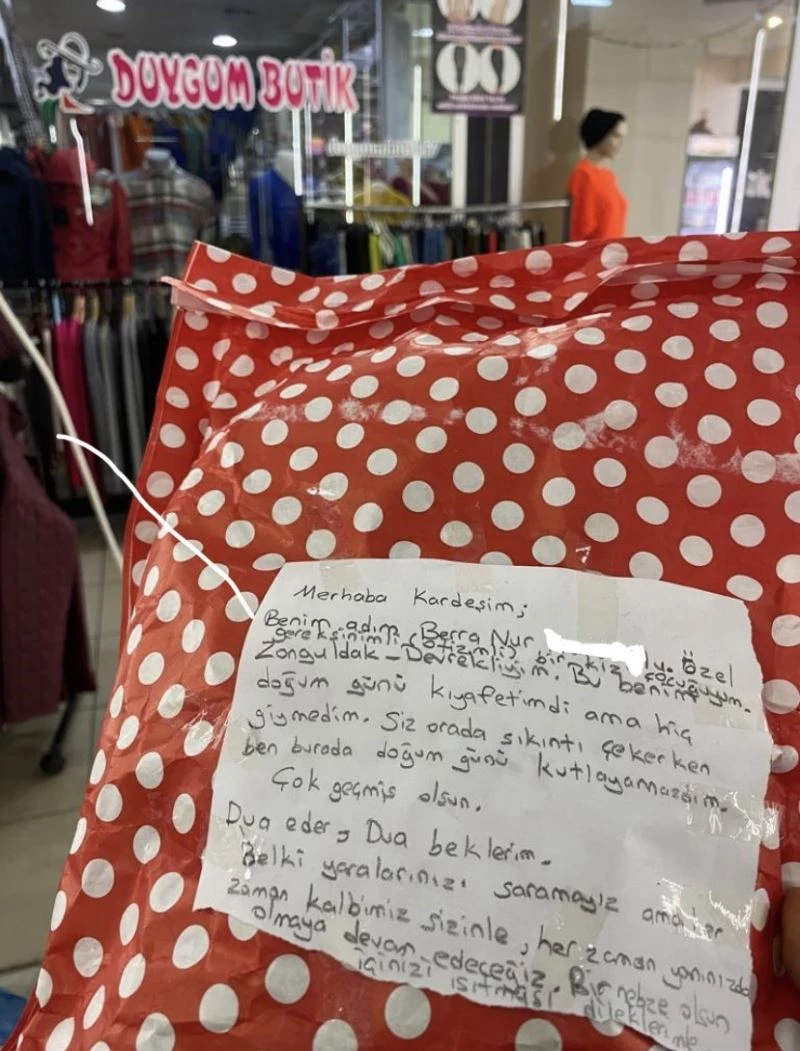 DUYGUM BUTİK
Merhaba Kardeşim;
Benim adım Berra Nur
ly. Özel
gereksinimli (otizimli) bir kız çocuğuyum.
Zonguldak - Devrekliyim. Bu benim
doğum günü kıyafetimdi ama hiç
giymedim. Siz orada sıkıntı çekerken
ben burada doğum günü kutlayamazdım.
Çok geçmiş olsun.
Dua eder, Dua beklerim.
Belki yaralarınızı saramayız ama her
zaman kalbimiz sizinle, her zaman yanınızda
olmaya devam edeceğiz. Bir nebze olsun
içinizi ısıtması dileklerimle